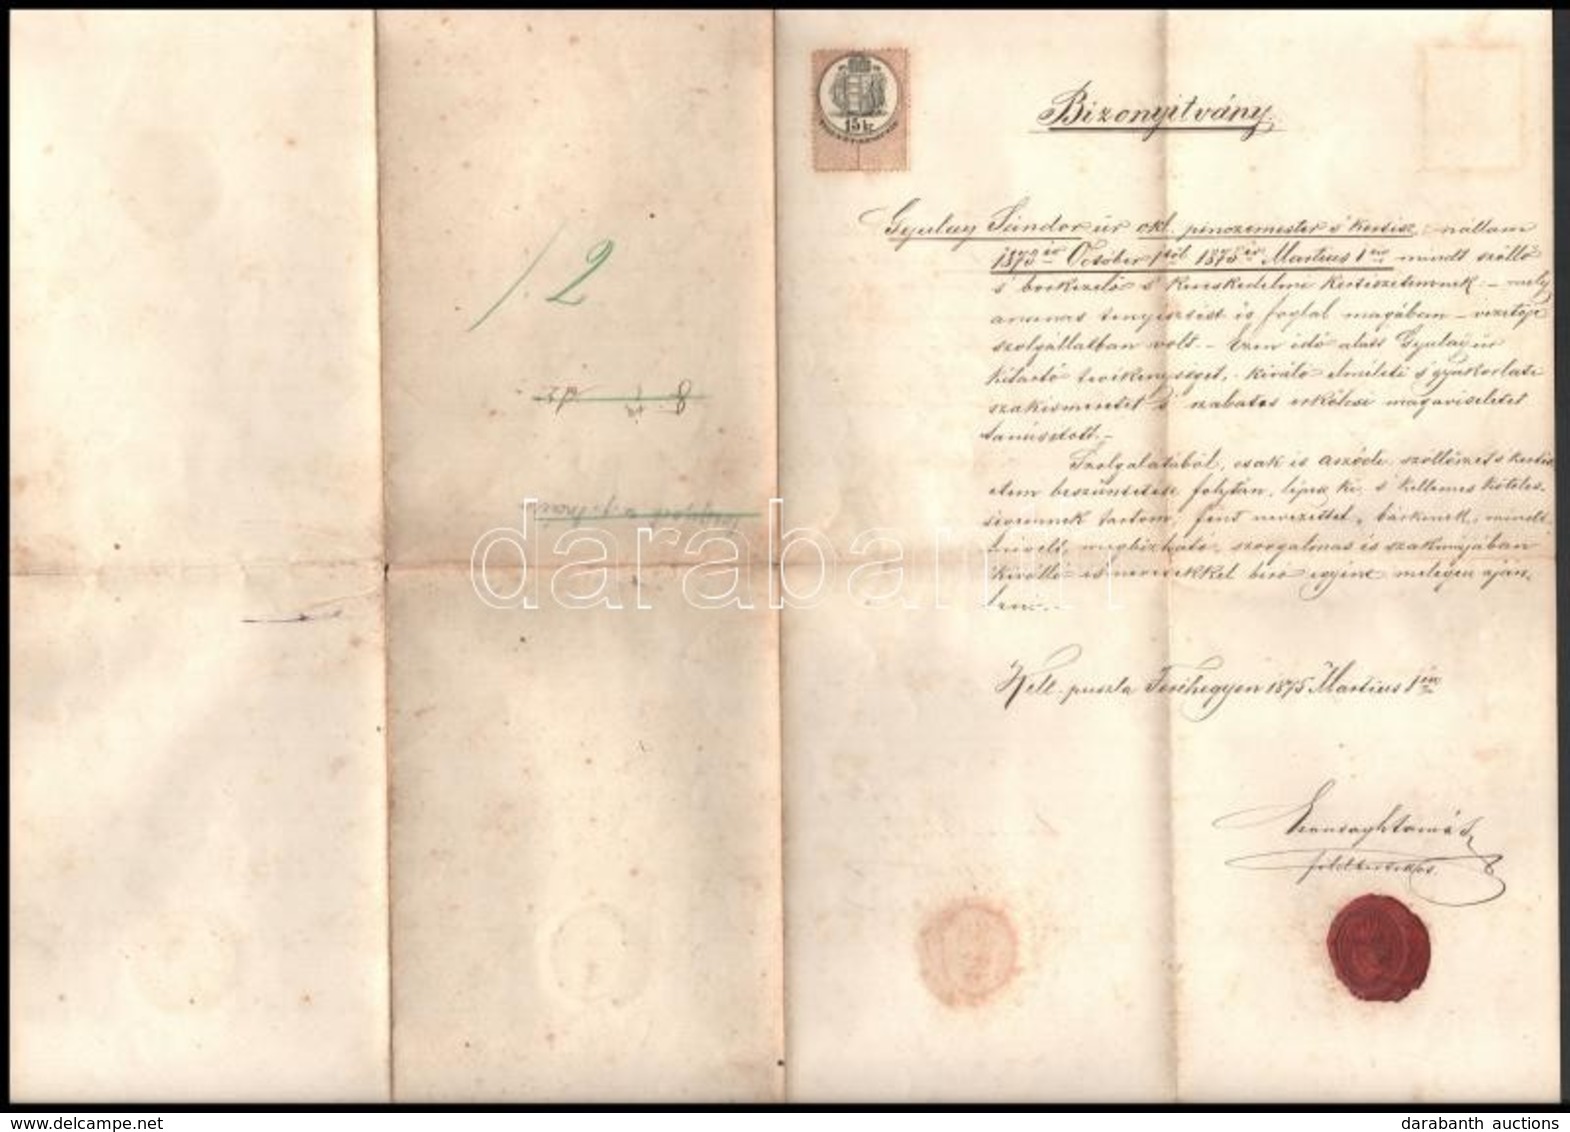 Bizonyitvány.
15 kr
Gyulay Sándor úr okl. pinczemester s kertész, nállam
1873 év October 1től 1875 év Martius 1 mindt szőllő
s borkezelő s kereskedelmi kertészetemnek – mely
ananas tenyésztést is foglal magában – vezetője
szolgállatban volt. – Ezen idő alatt Gyulay úr
kitartó tevékenységet, kiváló elméleti s gyakorlati
szakismeretet s szabatos erkölcsi magaviseletet
tanusított. –
Szolgalatából, csak is aszódi szőllőmet s kertés
etem beszüntetése folytán, lépes ki, s kellemes köteles-
ségemnek tartom, fent nevezettet, bárkinek, mindt
mivelt, megbizható, szorgalmas is szakmájában
kiválló ismeretekkel biró egyént melegen aján-
lani. –
Kelt puszta Terihegyen 1875 Martius 1én
földbirtokos.
/. 2
darabanth
darabanth auctions